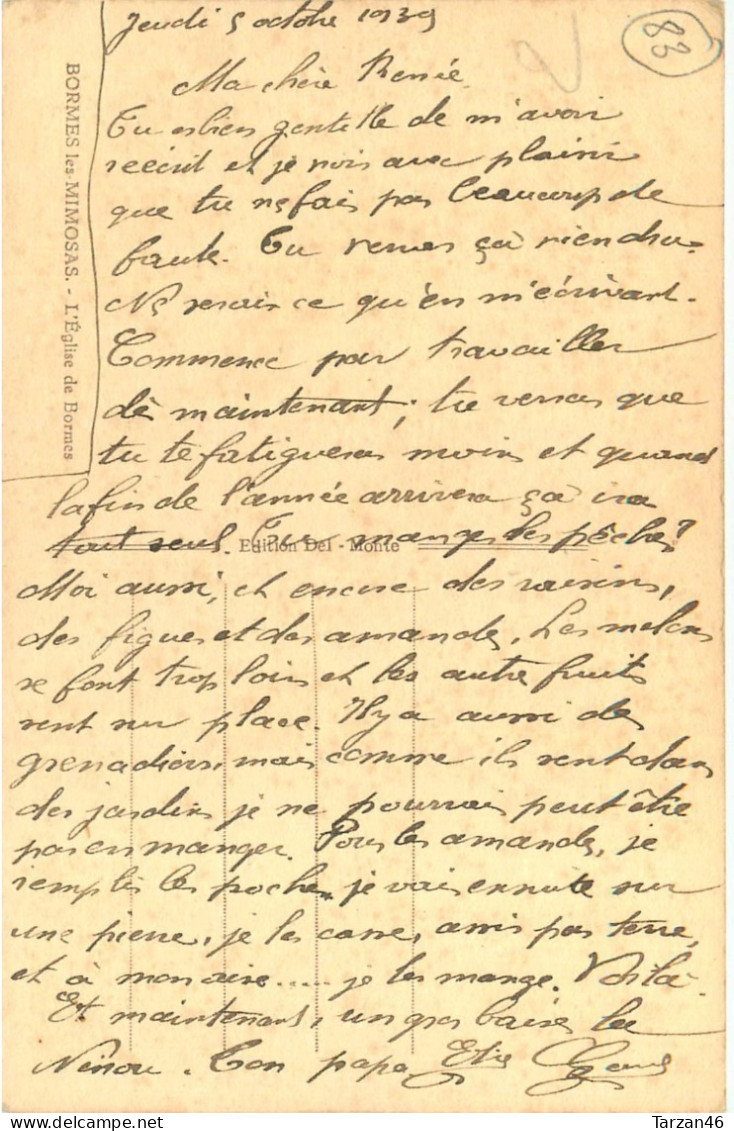 Jeudi 5 octobre 1939
83
Ma chère Renée
Tu es bien gentille de m'avoir
réécrit et je vois avec plaisir
que tu ne fais pas beaucoup de
faute. Tu verras ça viendra.
Ne serais ce qu'en m'écrivant.
Commence par travailler
dès maintenant; tu verras que
tu te fatigueras moins et quand
la fin de l'année arrivera ça ira
tout seul. Tu manges des pêches?
Edition Del-Monte
Moi aussi, et encore des raisins,
des figues et des amandes. Les melons
se font trop loin et les autre fruits
sont sur place. Il y a aussi des
grenadiers, mais comme ils sont dans
des jardins je ne pourrais peut être
pas en manger. Pour les amandes, je
remplis les poches je vais ensuite sur
une pierre, je les casse, assis par terre,
et à mon aise..... je les mange. Voilà.
Et maintenant, un gros baiser la
Ninou. Ton papa
BORMES les-MIMOSAS. - L'Église de Bormes
Tarzan46